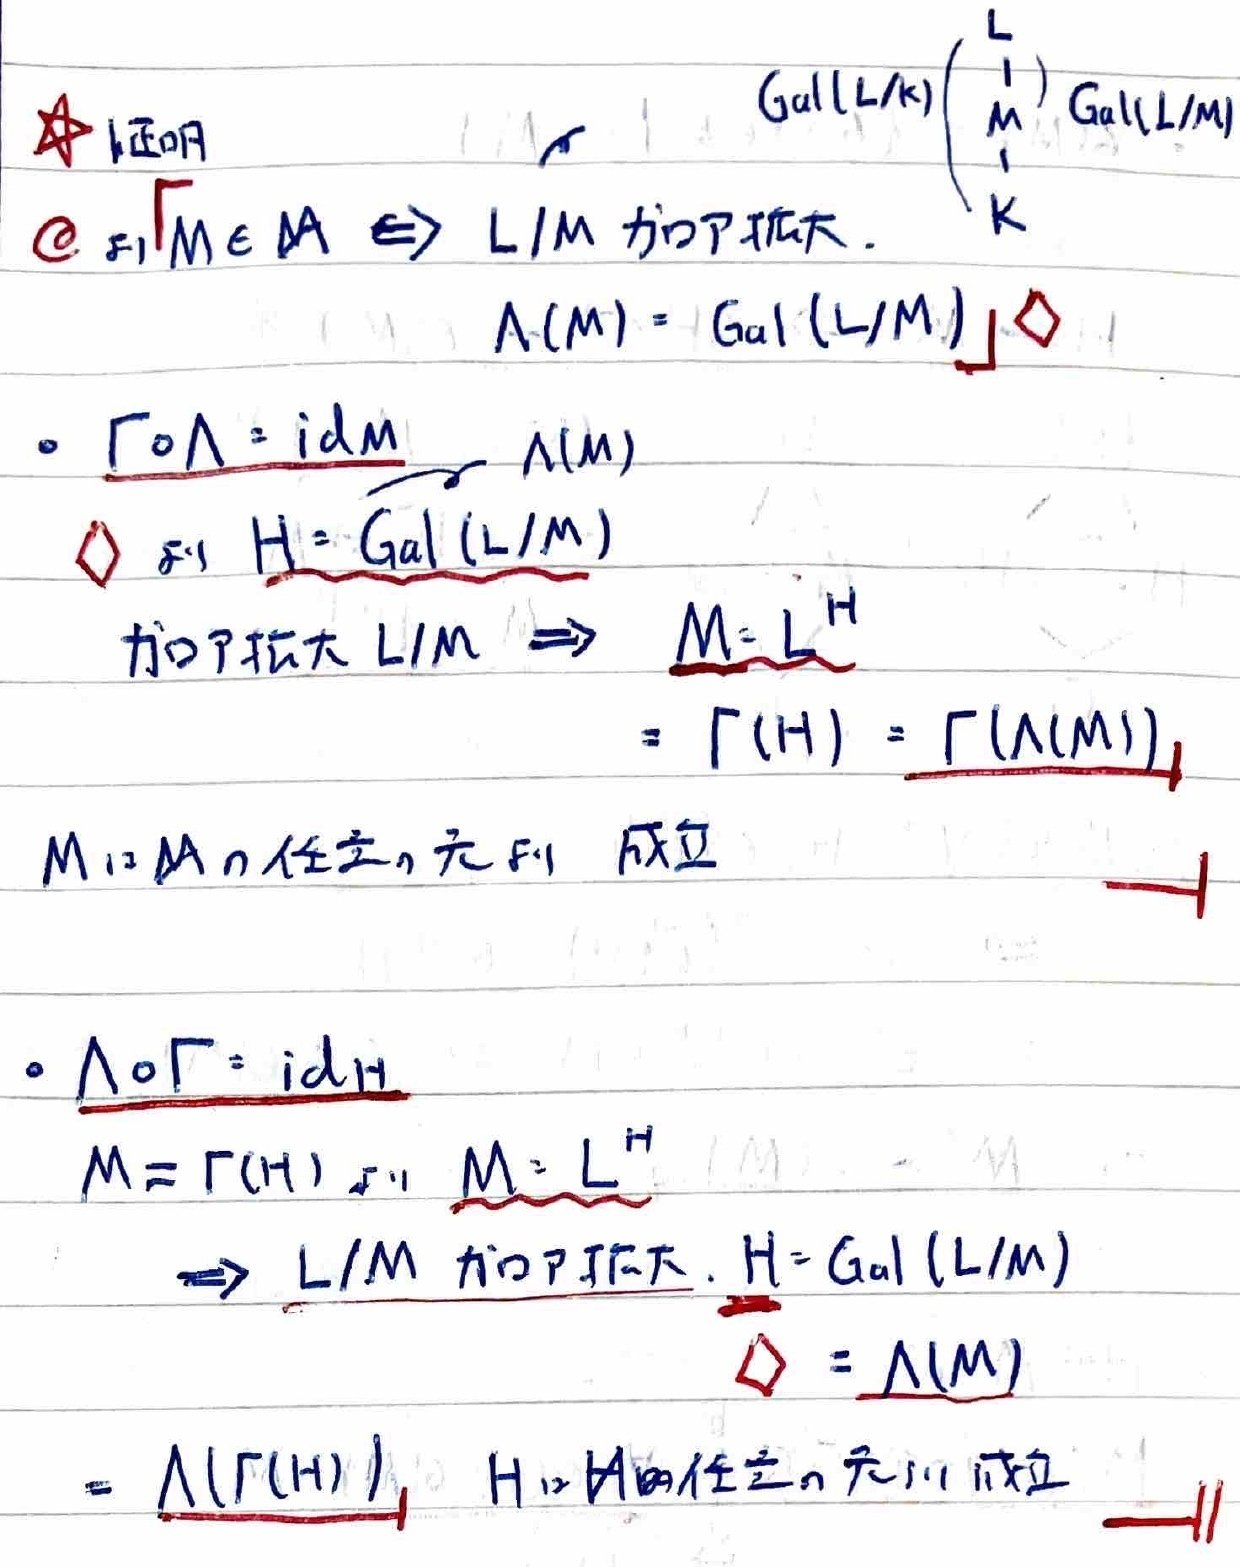 L
|
Gal(L/K) ( M ) Gal(L/M)
|
K
☆ 証明
@ より「M ∈ 𝕄 ⇔ L/M ガロア拡大.
Λ(M) = Gal(L/M)」◇
• Γ∘Λ = id𝕄
Λ(M)
◇ より H = Gal(L/M)
ガロア拡大 L/M ⇒ M = L^H
= Γ(H) = Γ(Λ(M))
M は 𝕄 の任意の元より 成立
• Λ∘Γ = idℍ
M = Γ(H) より M = L^H
⇒ L/M ガロア拡大. H = Gal(L/M)
◇ = Λ(M)
= Λ(Γ(H)) H は ℍ の任意の元より 成立